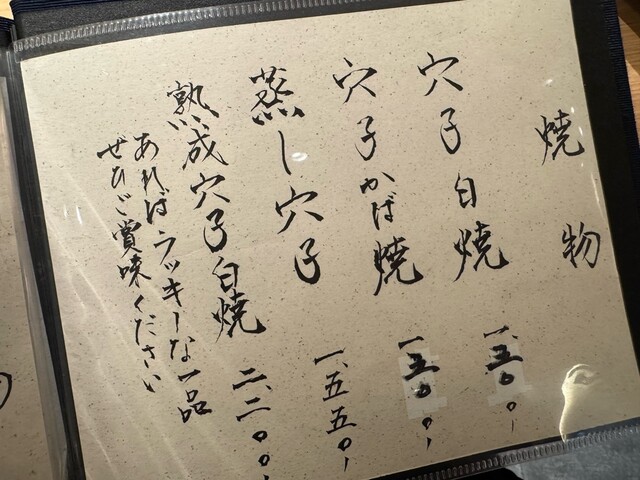 焼物
穴子白焼 一、五〇〇、
穴子かば焼 一、五〇〇、
蒸し穴子 一、五五〇、
熟成穴子白焼 二、二〇〇、
あればラッキーな一品
ぜひご賞味ください